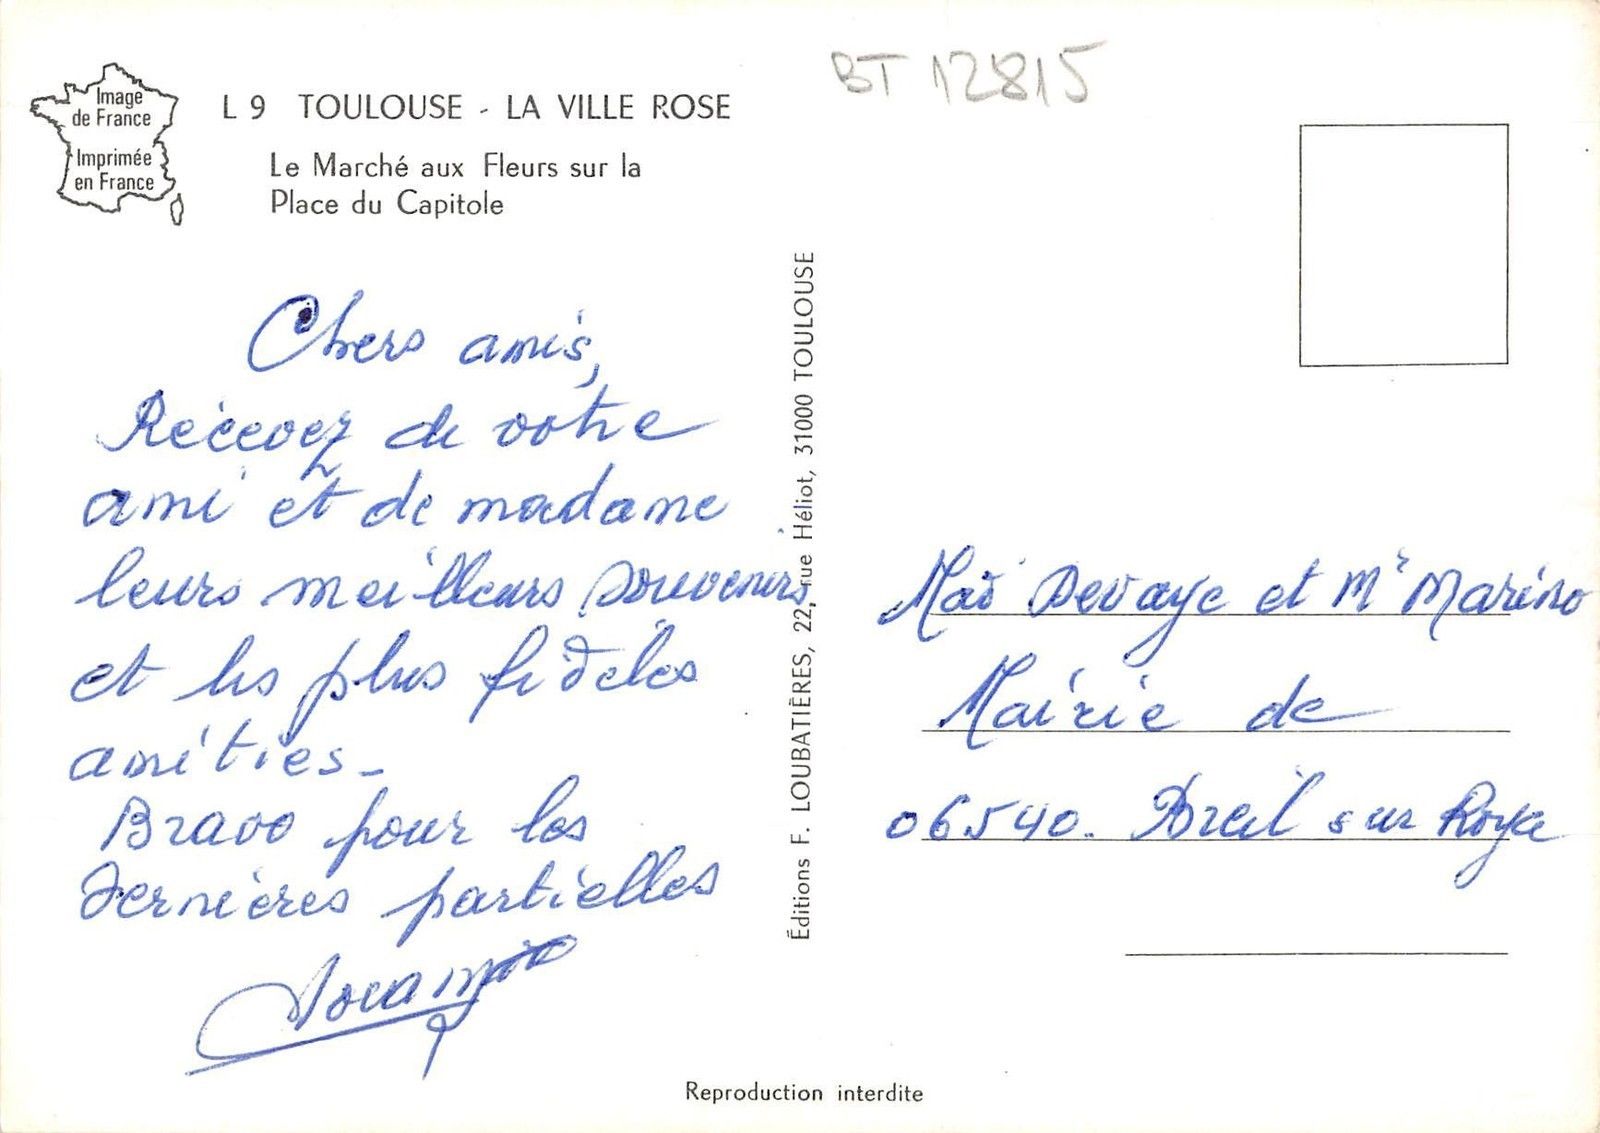 BT 12815
Image
de France
Imprimée
en France
L 9 TOULOUSE - LA VILLE ROSE
Le Marché aux Fleurs sur la
Place du Capitole
Chers amis,
Récevez de votre
ami et de madame
leurs meilleurs souvenirs
et les plus fidèles
amitiés-
Bravo pour les
dernières partielles
Éditions F. LOUBATIÈRES, 22, rue Héliot, 31000 TOULOUSE
Devaye et Mr Marino
Mairie de
06540. Breil sur Roya
Reproduction interdite